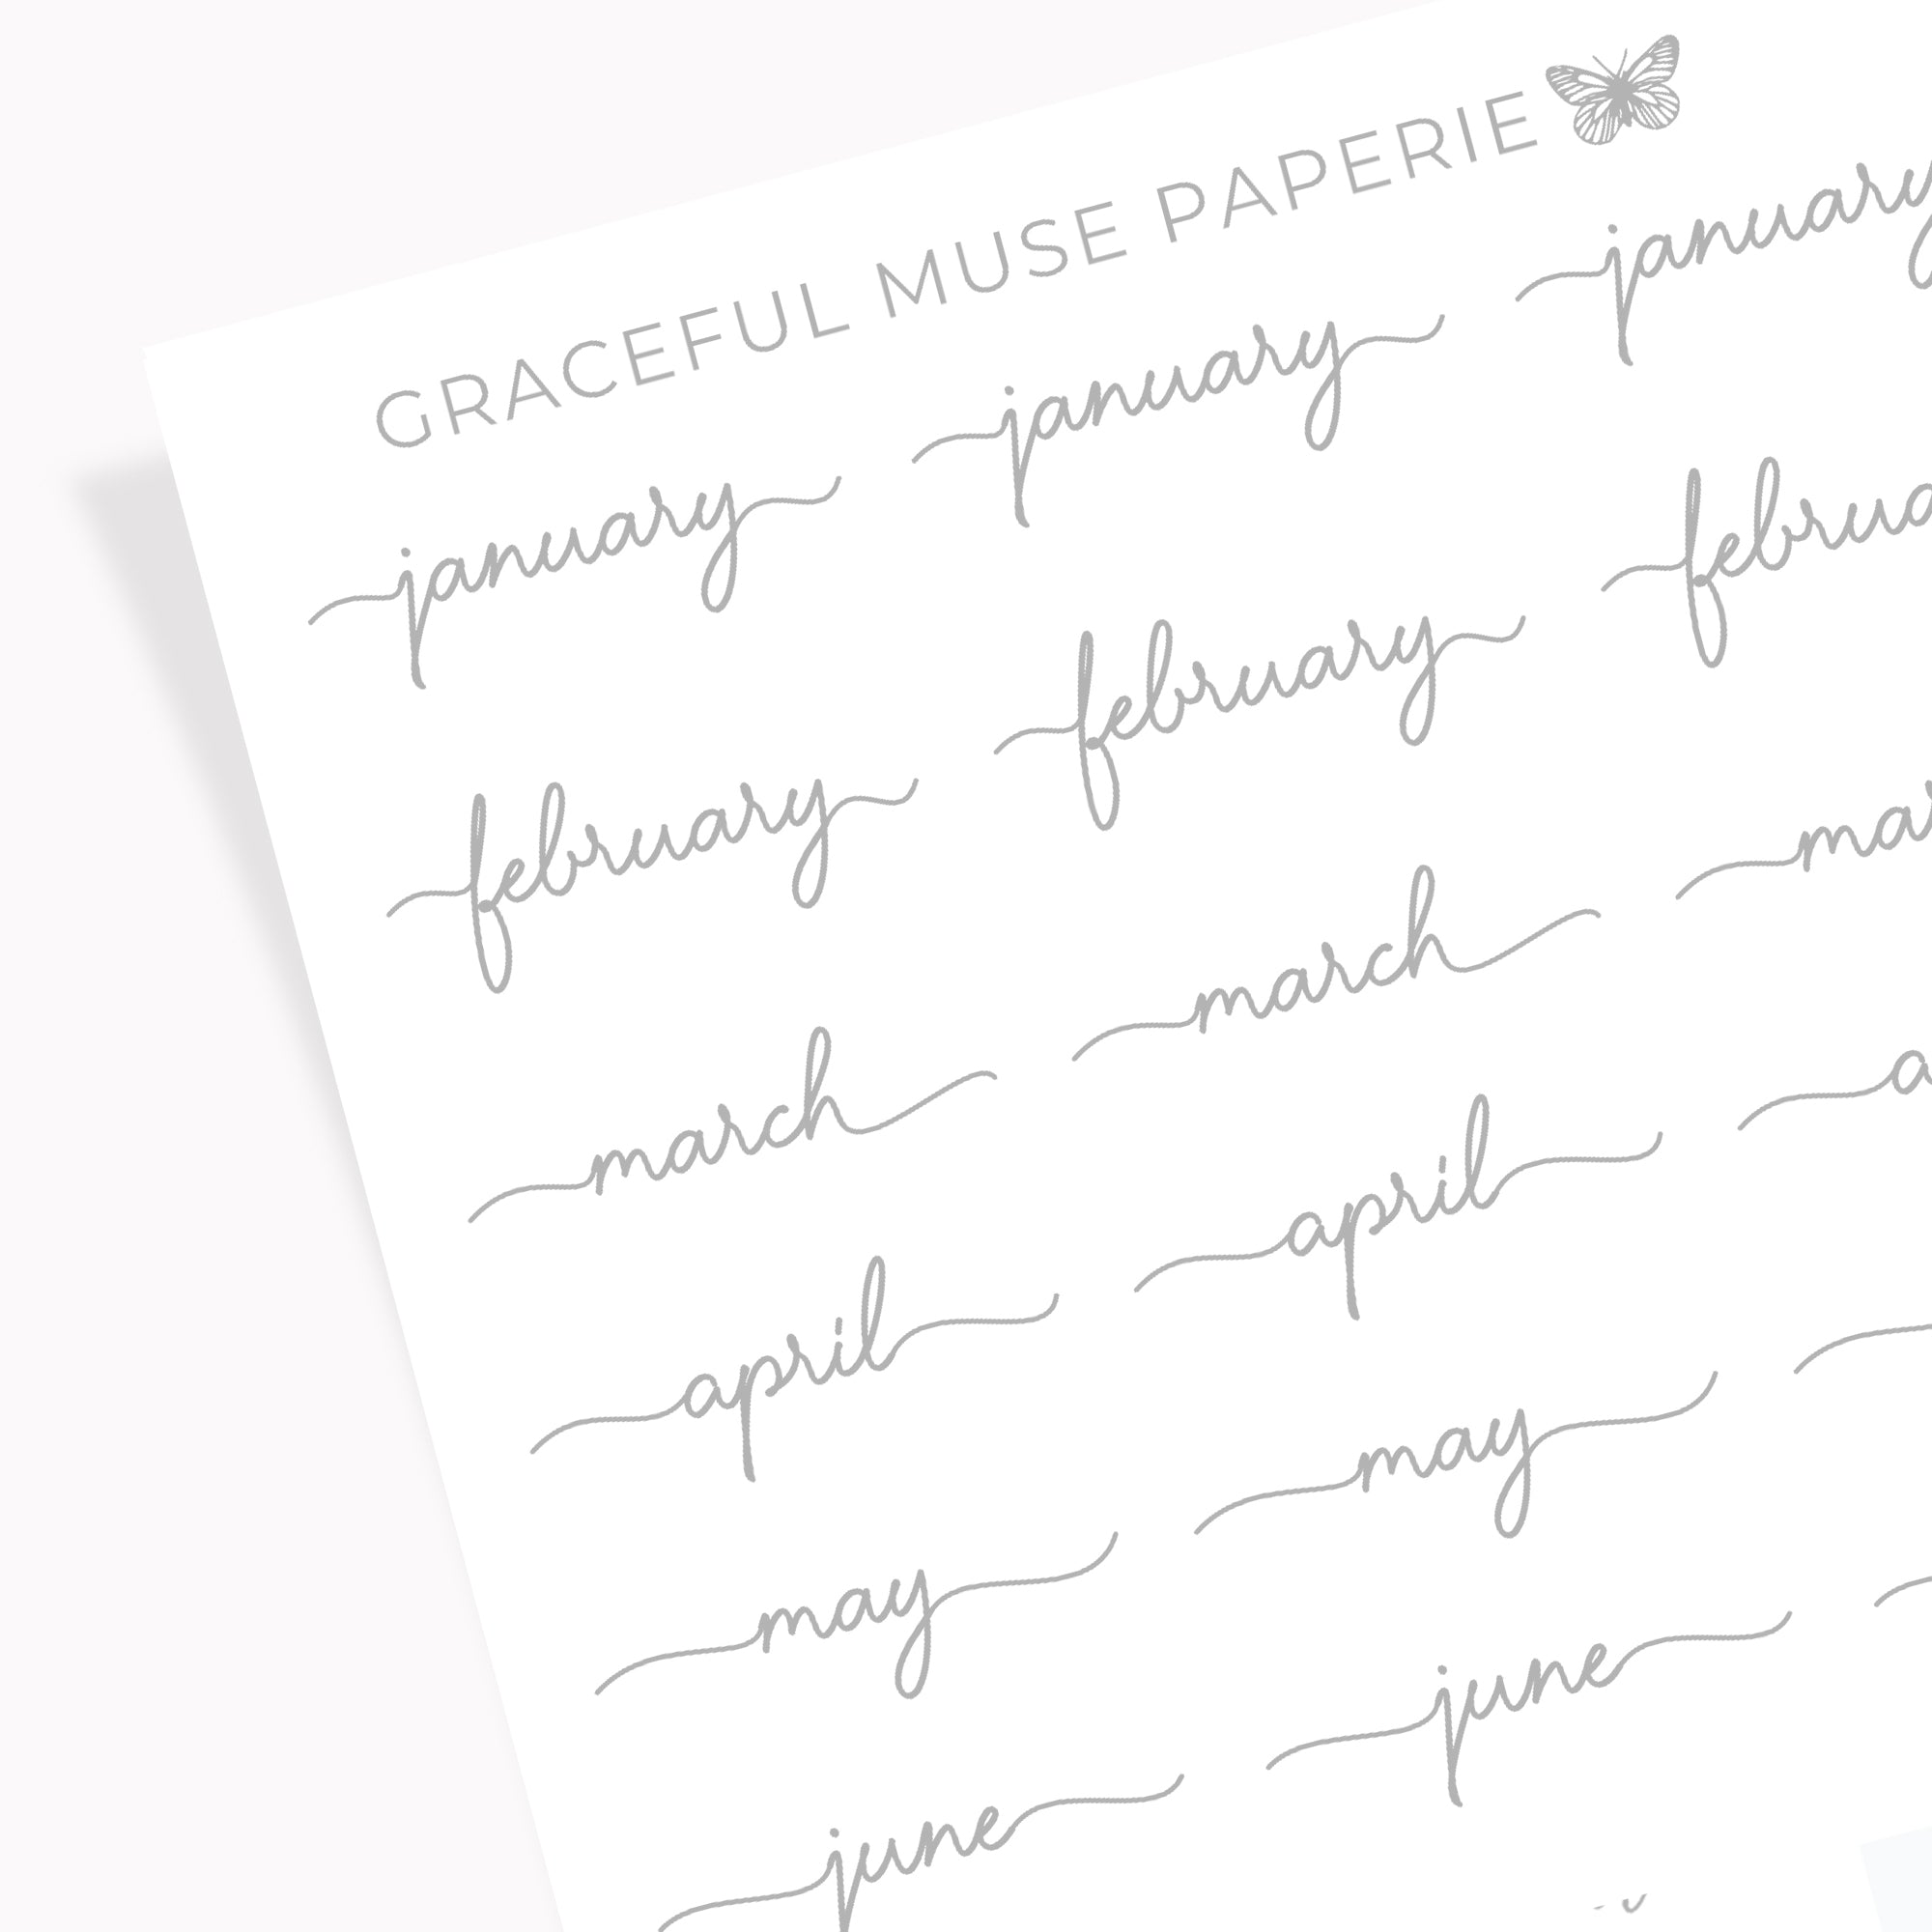 GRACEFUL MUSE PAPERIE
january january january
february february
march march
april april
may may
june june